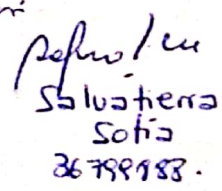 Salvatierra
Sofia
36799983.